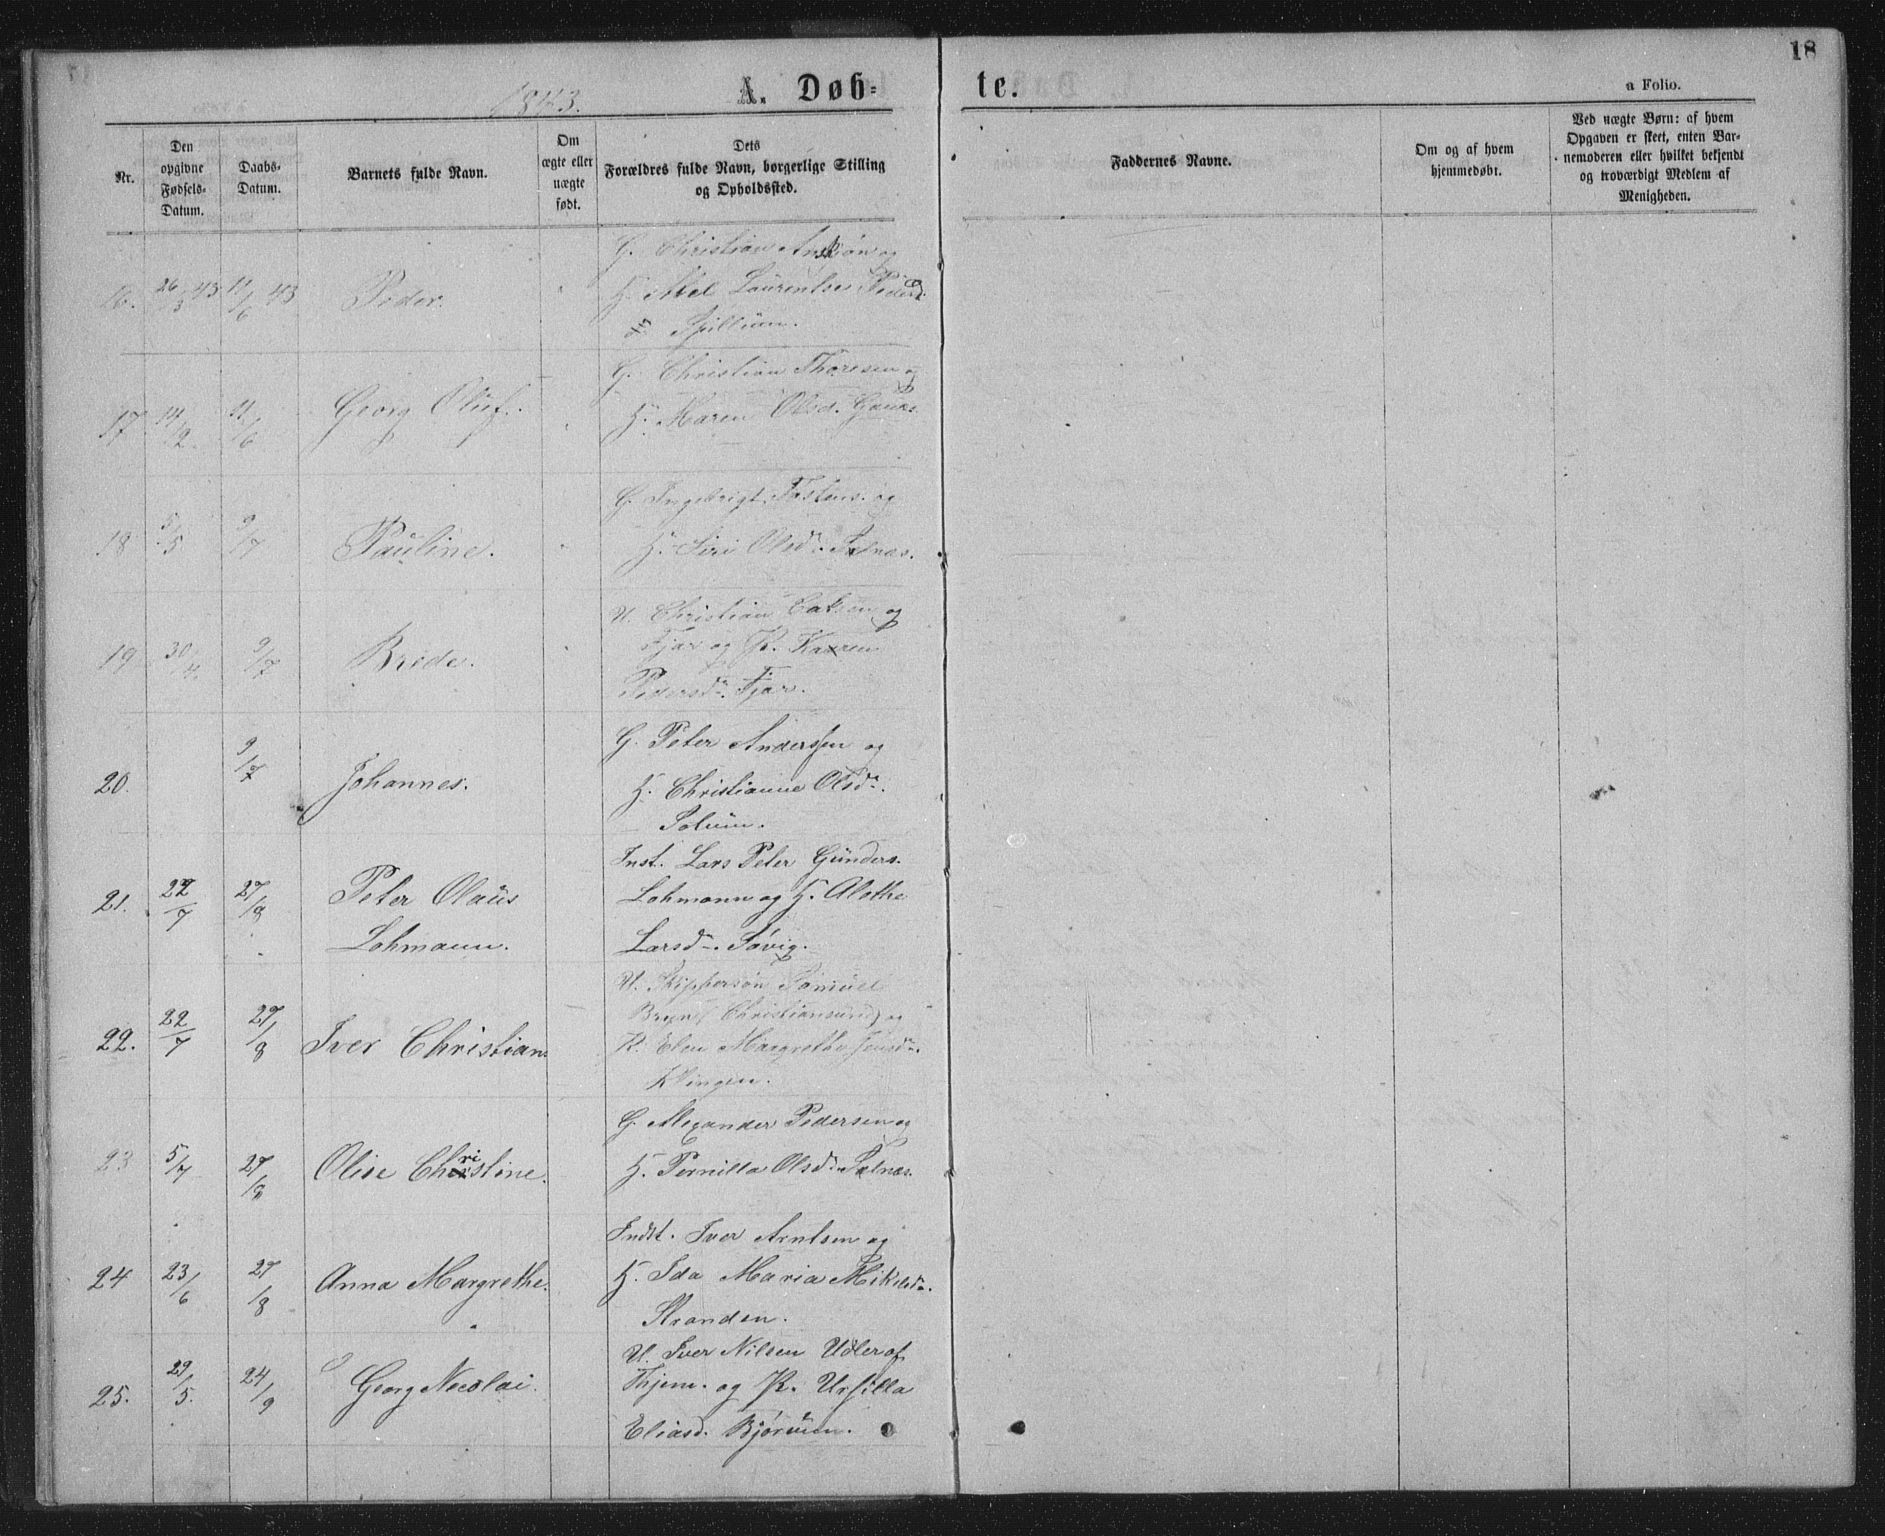 18
1843.
A. Døb-
te.
a Folio.
Nr.
Den opgivne Fødsels-Datum.
Daabs-Datum.
Barnets fulde Navn.
Om ægte eller uægte født.
Dets Forældres fulde Navn, borgerlige Stilling og Opholdssted.
Faddernes Navne.
Om og af hvem hjemmedøbt.
Ved uægte Børn: af hvem Opgaven er skeet, enten Barnemoderen eller hvilket bekjendt og troværdigt Medlem af Menigheden.
16. 26/3 43 11/6 43 Peder.
G. Christian og
H. Abel Laurentse Pedersd.
Spillum.
17. 14/2 11/6 Georg Oluf.
G. Christian Thoresen og
H. Maren Olsd.
18 5/5 9/7 Pauline.
G. Ingebrigt Tostens. og
H. Siri Olsdr. Salnæs.
19 30/4. 9/7 Brede.
U. Christian og
Fjær og P. Karen
Pedersdr. Fjær.
20. 9/7 Johannes.
G. Peter Anderssen og
H. Christianne Olsdr.
Solum.
21. 22/7 27/8 Peter Olaus
Lohmann.
Inst. Lars Peter Gunders.
Lohmann og H. Alothe
Larsdr. Søvig.
22. 22/7 27/8 Iver Christian
U. Skippersøn Samuel
(Christiansund) og
P. Elen Margrethe Jensdr.
Klingen.
23 5/7 27/8 Olise Christine.
G. Alexander Pedersen og
H. Pernilla Olsd. Salnæs.
24 23/6 27/8 Anna Margrethe.
Indst. Iver Arntsen og
H. Ida Maria Mikelsdr.
Stranden.
25. 29/5. 24/9 Georg Necolai.
U. Iver Nilsen Udleraf
Thjem. og P. Ursilla
Eliasd. Bjørum.